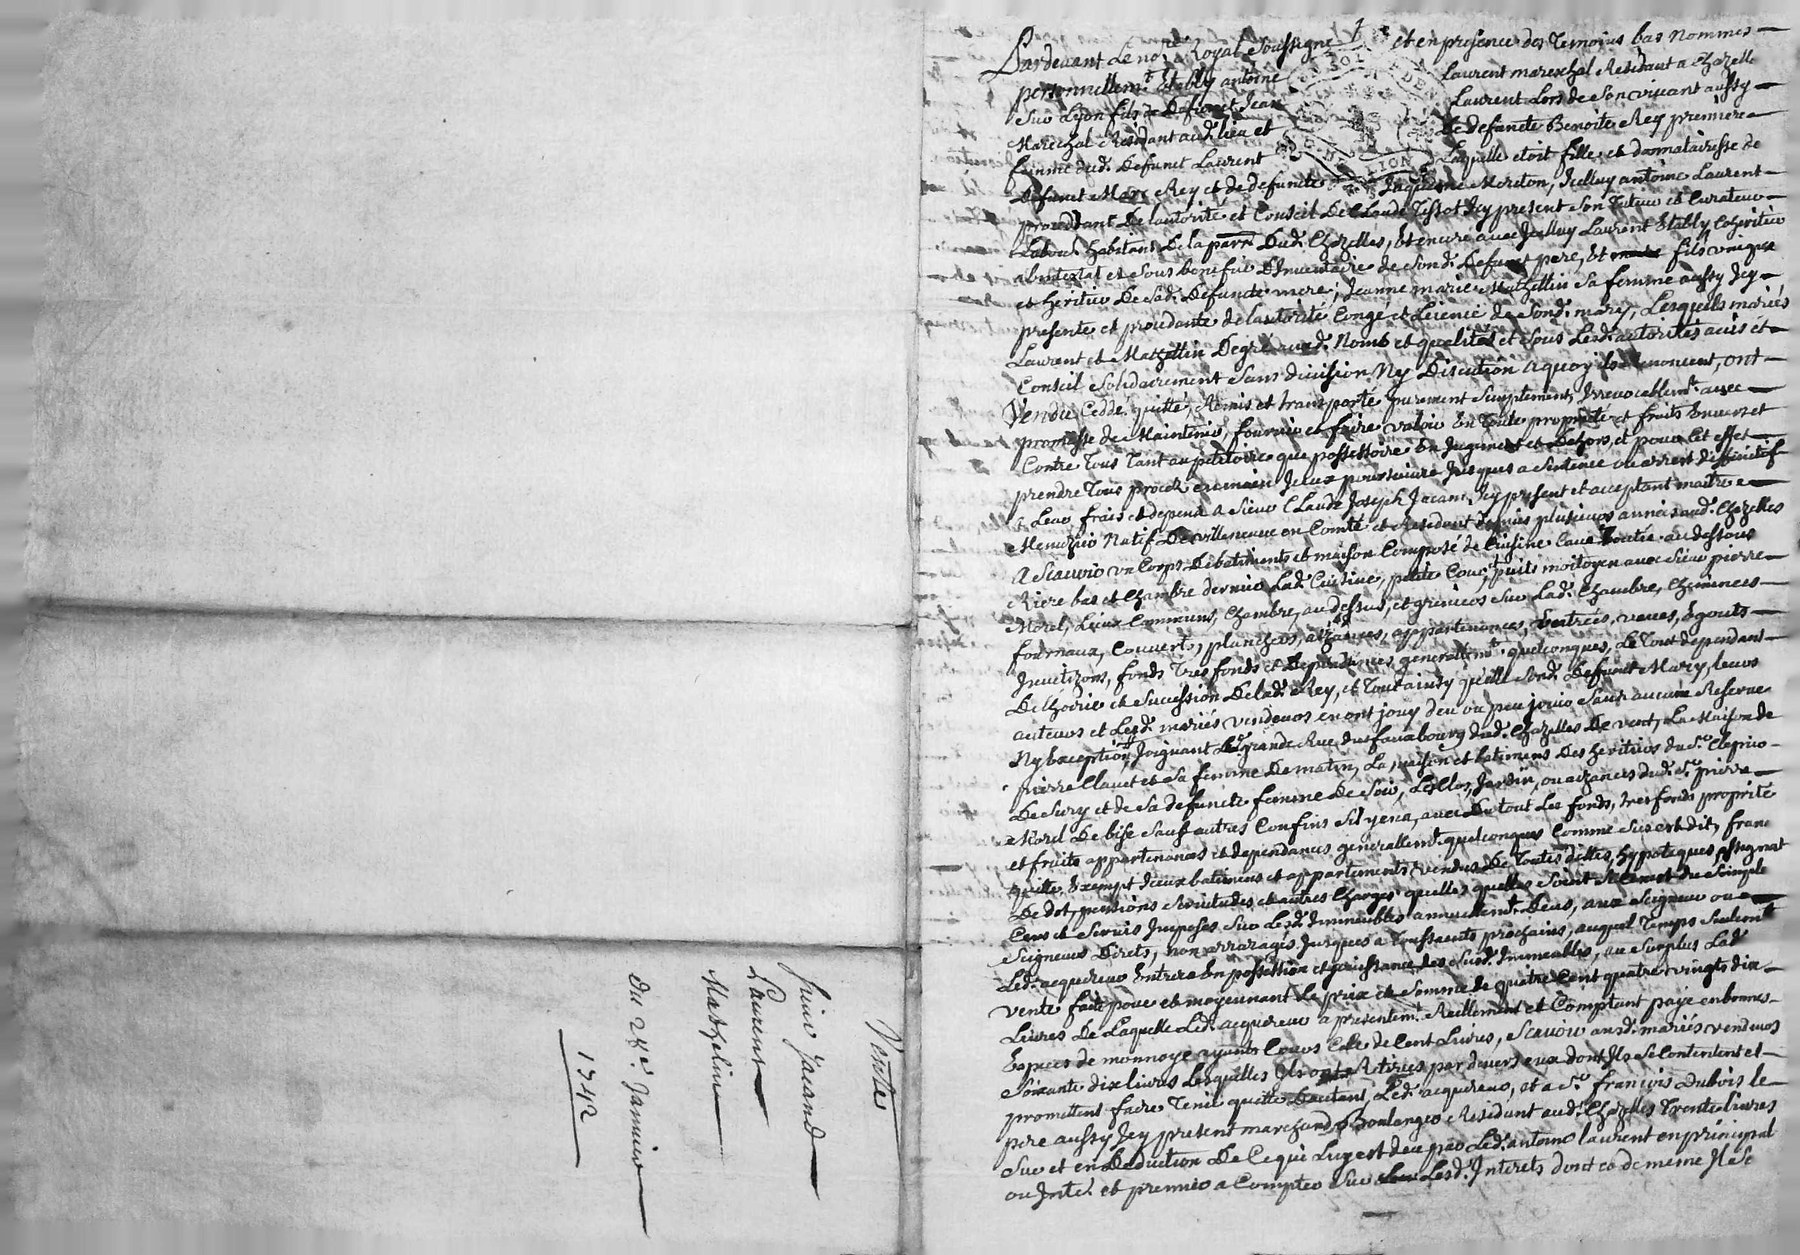 Vente
Sieur Jacand
Laurent
Matzelin
du 28e. Janvier
1742
1
Pardevant Le no.re Royal Soussigné et en presence des Temoins bas Nommes
personnellem.t Etably antoine Laurent mareschal Residant a Chazelle
sur Lyon fils de Defunct Jean Laurent Lors de son vivant aussy
Marechal Residant aud. lieu et de defuncte Benoite Rey premiere
femme dud. Defunct Laurent Laquelle etoit fille et donnatairesse de
Defunct Marc Rey et de defuncte Jaqueme Moreton, Icelluy antoine Laurent
proceddant De lautorité et Conseil De Claude Tissot Icy present son Tuteur et Curateur
Labour. habitant De la parr. Dud. Chazelles, Et encore avec Icelluy Laurent Etably Coheritier
abintestat et sous benefice D'Inventaire de Sond. Defunct pere, Et fils unique
et heritier De Sad. Defuncte mere; Jeanne marie Matzellin Sa femme aussy Icy
presente et procedante de lautorité Congé et Licence de Sond. mary, Lesquels mariés
Laurent et Matzellin Degré auxd. Noms et qualités et sous Lesd. autorités avis et
Conseil Solidairement sans division Ny Discution a quoy ils Renoncent, ont
Vendu Ceddé, quitté, Remis et transporté purement Simplement, Irrevocablem.t avec
promesse de Maintenir, fournir et faire valoir En Toute proprieté et fruits Envers et
Contre Tous Tant au petitoire que possessoire En Jugement et Dehors, et pour Cet effet
prendre Tous procés en main Iceux poursuivre Jusques a Sentence ou arrest diffinitif
a Leur frais et depens a Sieur Claude Joseph Jacam Icy present et acceptant maitre
Menuzier Natif De villeneuve en Comté et Residant depuis plusieurs années aud. Chazelles
A Scavoir un Corps De batiments et maison Composé de Cuisine Cave voutée au dessous
Riere bas et Chambre dernier Lad. Cuisine, petite Cour, puits moitoyen avec Sieur pierre
Morel, Lieux Communs, Chambre, au dessus, et greniers Sur Lad. Chambre, Cheminées
fournaux, Couverts, planchers, aizances, appartenances, Entrées, veues, Egouts
fonds Tres fonds et Dependances generallem.t quelconques, Le Tout dependant
De L'hoirie et Succession De lad. Rey, et Tout ainsy qu'elle Sond. Defunct Mary, Leurs
auteurs et Lesd. mariés vendeurs en ont jouy deu ou peu jouir Sans aucune Reserve
Ny Exception, Joignant La grande Rue du fauxbourg dud. Chazelles De vent, La Maison de
pierre Clavel et Sa femme De matin, La maison et batimens Des heritiers du S.r
De Sury et de Sa defuncte femme De Soir, Le Clos, Jardin, ou aizances dud. S.r pierre
Morel De bise Sauf autres Confins Sil y en a, avec Du tout Les fonds, tres fonds proprieté
et fruits appartenances et dependances generallem.t quelconques Comme Sus est dit, franc
quitte Exempt Iceux batimens et appartements vendus De Toutes dettes, hypoteques assignat
De dot, pensions Servitudes et autres Charges quelles quelles Soient du Simple
Cens et Servis Imposés Sur Lesd. Immeubles annuellem.t Deus, aux Seigneur ou
Seigneurs Directs, non arrerages Jusques a Toussaints prochains, auquel Temps Seulem.t
Led. acquereur Entrera En possession et Jouissance des Susd. Immeubles, au Surplus Lad.
vente faite pour et moyennant Le prix et Somme de quatre Cent quatre vingts dix
Livres De Laquelle Led. acquereur a presentem.t Reellement et Comptant payé en bonnes
Especes de monnoye ayants Cours Celle de Cent Livres, Scavoir auxd. mariés vendeurs
Soixante dix livres Lesquelles Ils ont Retirées pardevers eux dont Ils Se Contentent et
promettent faire Tenir quitte D'autant, Led. acquereur, et a S.r françois Dubois le
pere aussy Icy present marchand Boulanger Residant aud. Chazelles Trente Livres
Sur et en Deduction De Ce qui Luy est deu par Led. antoine laurent en principal
ou Inter. et premier a Compter Sur Lesd. Interets dont et de meme Il Se